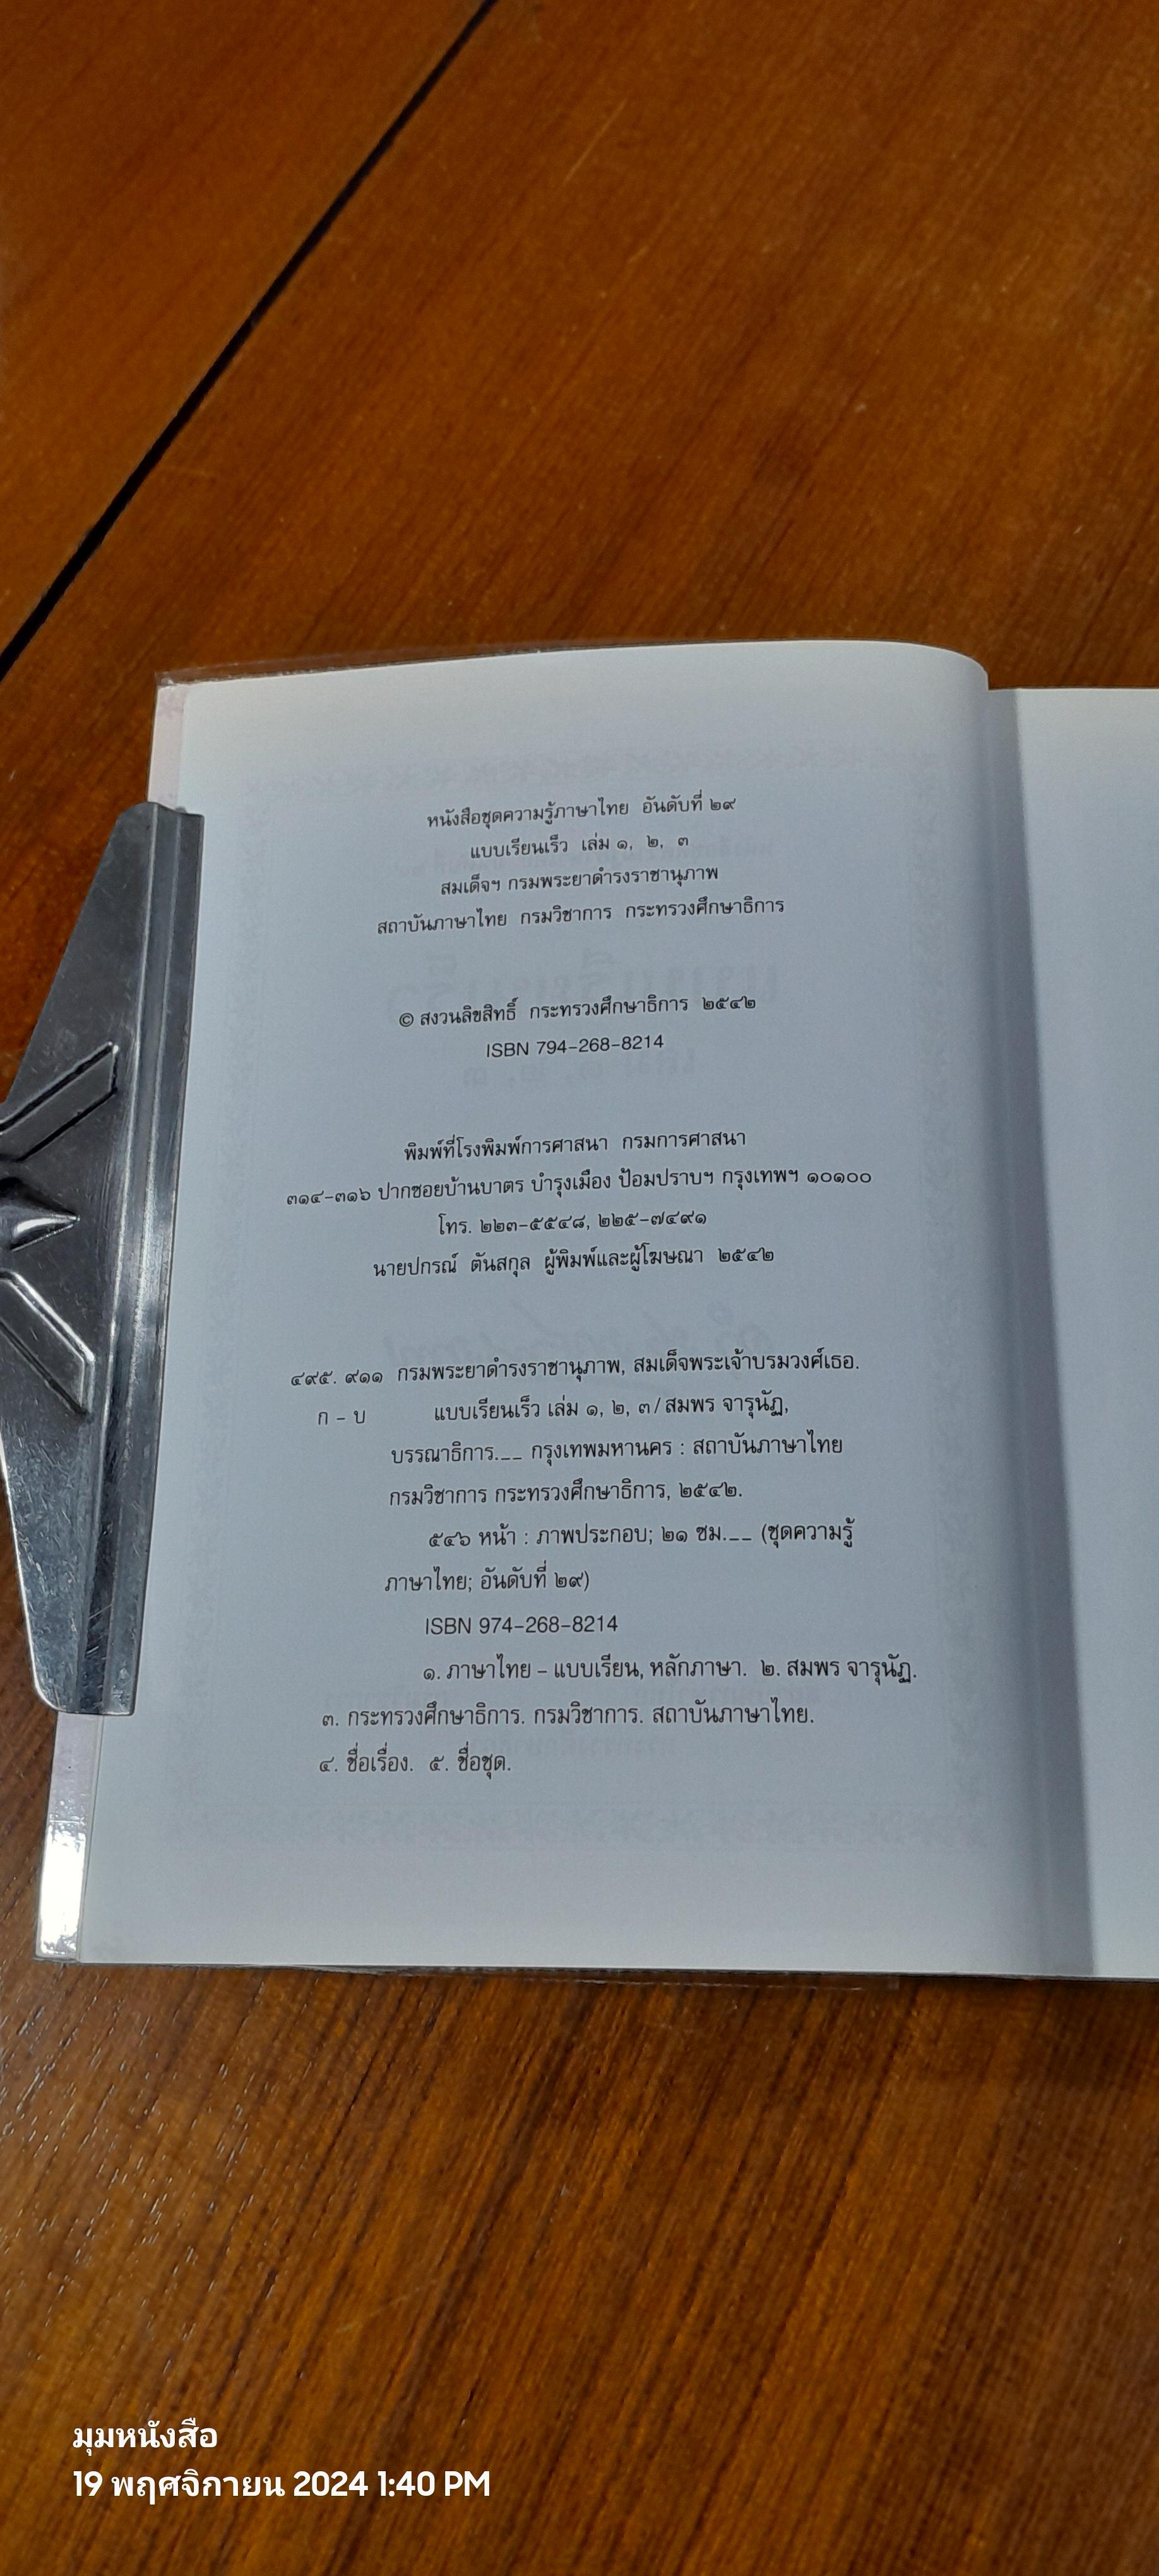 หนังสือชุดความรู้ภาษาไทย อันดับที่ ๒๙
แบบเรียนเร็ว เล่ม ๑, ๒, ๓
สมเด็จฯ กรมพระยาดำรงราชานุภาพ
สถาบันภาษาไทย กรมวิชาการ กระทรวงศึกษาธิการ
© สงวนลิขสิทธิ์ กระทรวงศึกษาธิการ ๒๕๔๒
ISBN 794-268-8214
พิมพ์ที่โรงพิมพ์การศาสนา กรมการศาสนา
๓๑๔-๓๑๖ ปากซอยบ้านบาตร บำรุงเมือง ป้อมปราบฯ กรุงเทพฯ ๑๐๑๐๐
โทร. ๒๒๓-๕๕๔๘, ๒๒๕-๗๔๙๑
นายปกรณ์ ตันสกุล ผู้พิมพ์และผู้โฆษณา ๒๕๔๒
๔๙๕. ๙๑๑ กรมพระยาดำรงราชานุภาพ, สมเด็จพระเจ้าบรมวงศ์เธอ.
ก - บ แบบเรียนเร็ว เล่ม ๑, ๒, ๓/สมพร จารุนัฏ,
บรรณาธิการ.__ กรุงเทพมหานคร : สถาบันภาษาไทย
กรมวิชาการ กระทรวงศึกษาธิการ, ๒๕๔๒.
๕๔๖ หน้า : ภาพประกอบ; ๒๑ ซม.__ (ชุดความรู้
ภาษาไทย; อันดับที่ ๒๙)
ISBN 974-268-8214
๑. ภาษาไทย - แบบเรียน, หลักภาษา. ๒. สมพร จารุนัฏ.
๓. กระทรวงศึกษาธิการ. กรมวิชาการ. สถาบันภาษาไทย.
๔. ชื่อเรื่อง. ๕. ชื่อชุด.
มุมหนังสือ
19 พฤศจิกายน 2024 1:40 PM